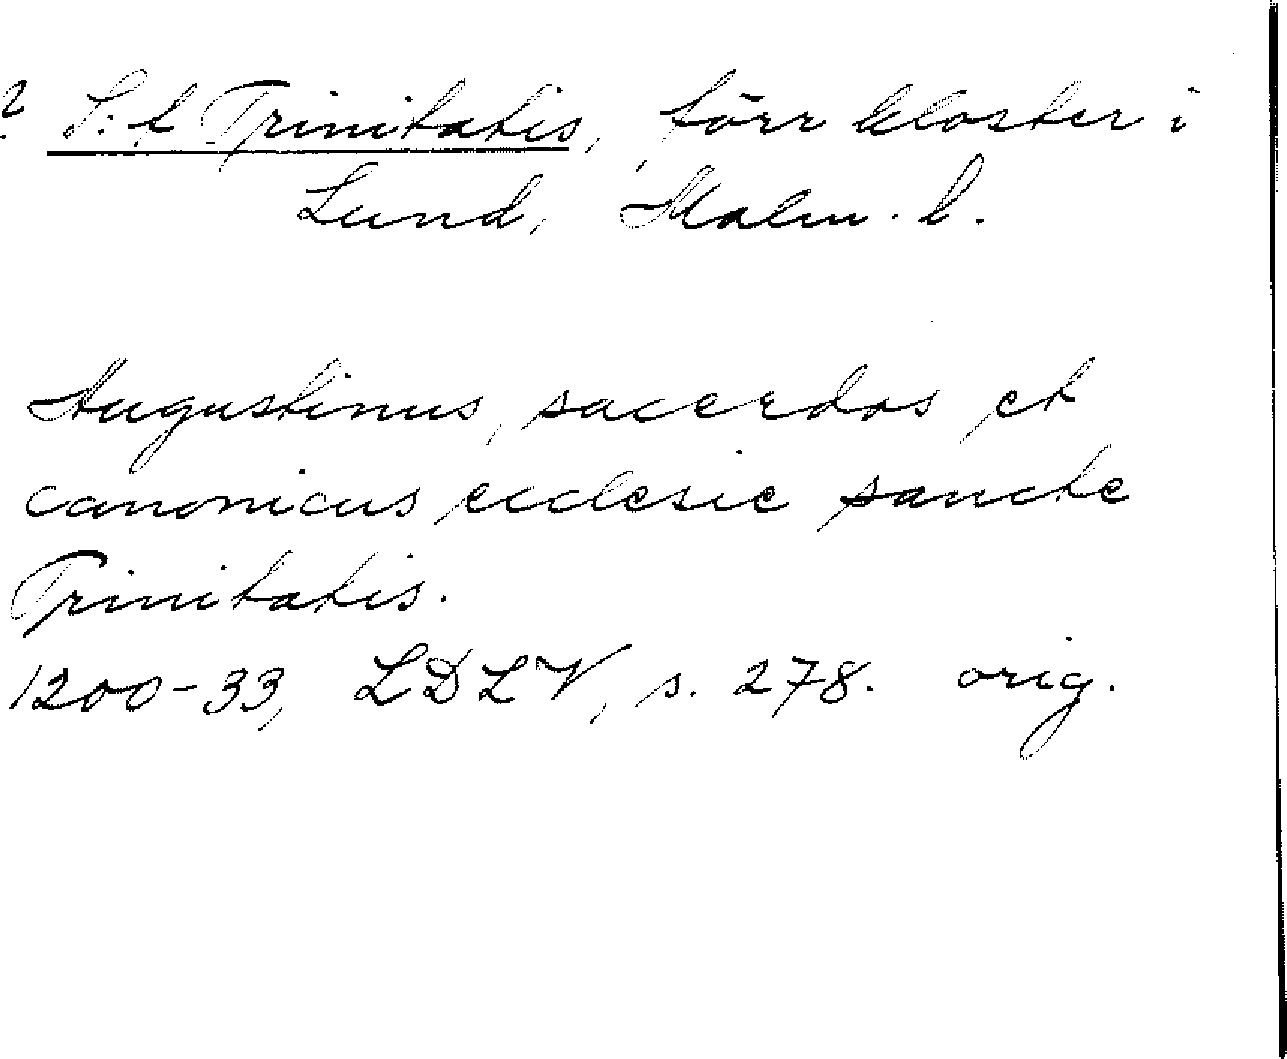 ? S:t Trinitatis, förr kloster i
Lund, Malm. l.
Augustinus, sacerdos et
canonicus ecclesie sancte
Trinitatis.
1200-33, LDLV, s. 278. orig.